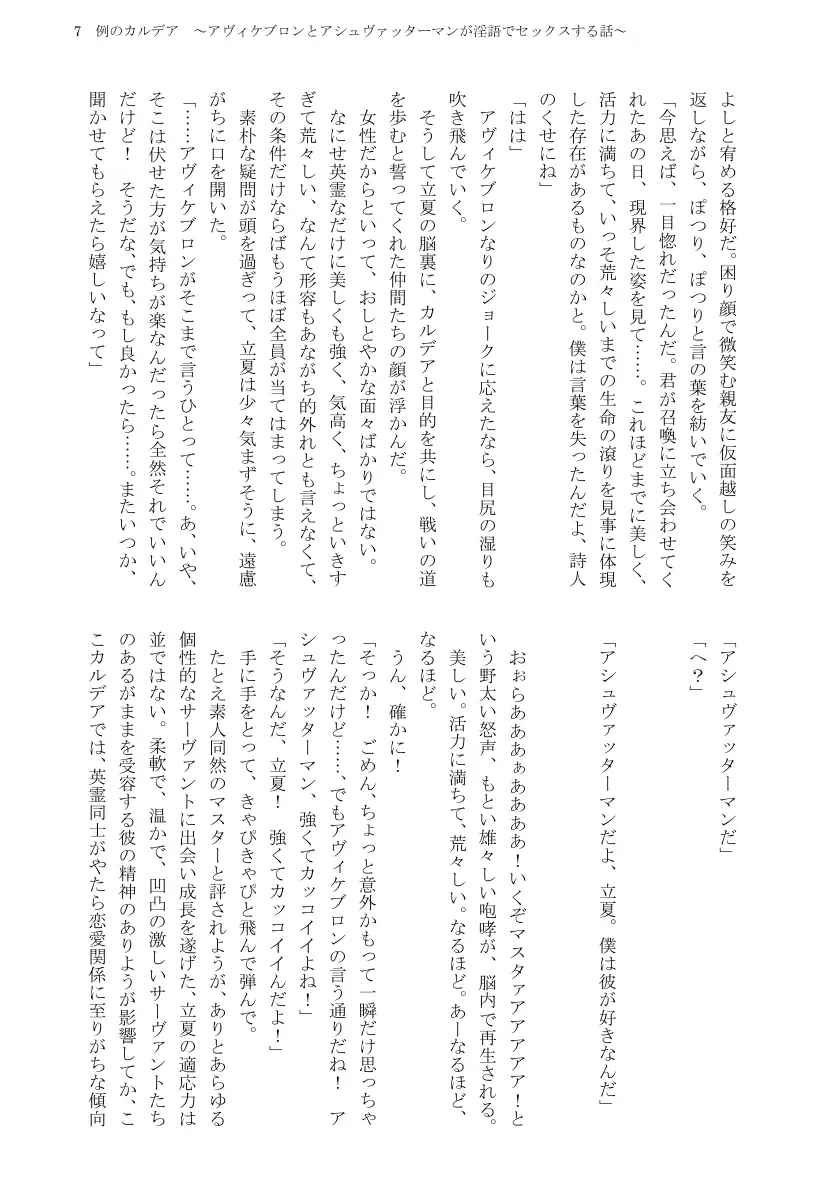 7 例のカルデア ～アヴィケブロンとアシュヴァッターマンが淫語でセックスする話～
よしと宥める格好だ。困り顔で微笑む親友に仮面越しの笑みを
返しながら、ぽつり、ぽつりと言の葉を紡いでいく。
「今思えば、一目惚れだったんだ。君が召喚に立ち会わせてく
れたあの日、現界した姿を見て……。これほどまでに美しく、
活力に満ちて、いっそ荒々しいまでの生命の滾りを見事に体現
した存在があるものなのかと。僕は言葉を失ったんだよ、詩人
のくせにね」
「はは」
アヴィケブロンなりのジョークに応えたなら、目尻の湿りも
吹き飛んでいく。
そうして立夏の脳裏に、カルデアと目的を共にし、戦いの道
を歩むと誓ってくれた仲間たちの顔が浮かんだ。
女性だからといって、おしとやかな面々ばかりではない。
なにせ英霊なだけに美しくも強く、気高く、ちょっといきす
ぎて荒々しい、なんて形容もあながち的外れとも言えなくて、
その条件だけならばもうほぼ全員が当てはまってしまう。
素朴な疑問が頭を過ぎって、立夏は少々気まずそうに、遠慮
がちに口を開いた。
「……アヴィケブロンがそこまで言うひとって……。あ、いや、
そこは伏せた方が気持ちが楽なんだったら全然それでいいん
だけど! そうだな、でも、もし良かったら……。またいつか、
聞かせてもらえたら嬉しいなって」
「アシュヴァッターマンだ」
「へ?」
「アシュヴァッターマンだよ、立夏。僕は彼が好きなんだ」
おぉらあああぁああああ!いくぞマスタァアアアアア!と
いう野太い怒声、もとい雄々しい咆哮が、脳内で再生される。
美しい。活力に満ちて、荒々しい。なるほど。あーなるほど、
なるほど。
うん、確かに!
「そっか! ごめん、ちょっと意外かもって一瞬だけ思っちゃ
ったんだけど……、でもアヴィケブロンの言う通りだね! ア
シュヴァッターマン、強くてカッコイイよね!」
「そうなんだ、立夏! 強くてカッコイイんだよ!」
手に手をとって、きゃぴきゃぴと飛んで弾んで。
たとえ素人同然のマスターと評されようが、ありとあらゆる
個性的なサーヴァントに出会い成長を遂げた、立夏の適応力は
並ではない。柔軟で、温かで、凹凸の激しいサーヴァントたち
のあるがままを受容する彼の精神のありようが影響してか、こ
こカルデアでは、英霊同士がやたら恋愛関係に至りがちな傾向